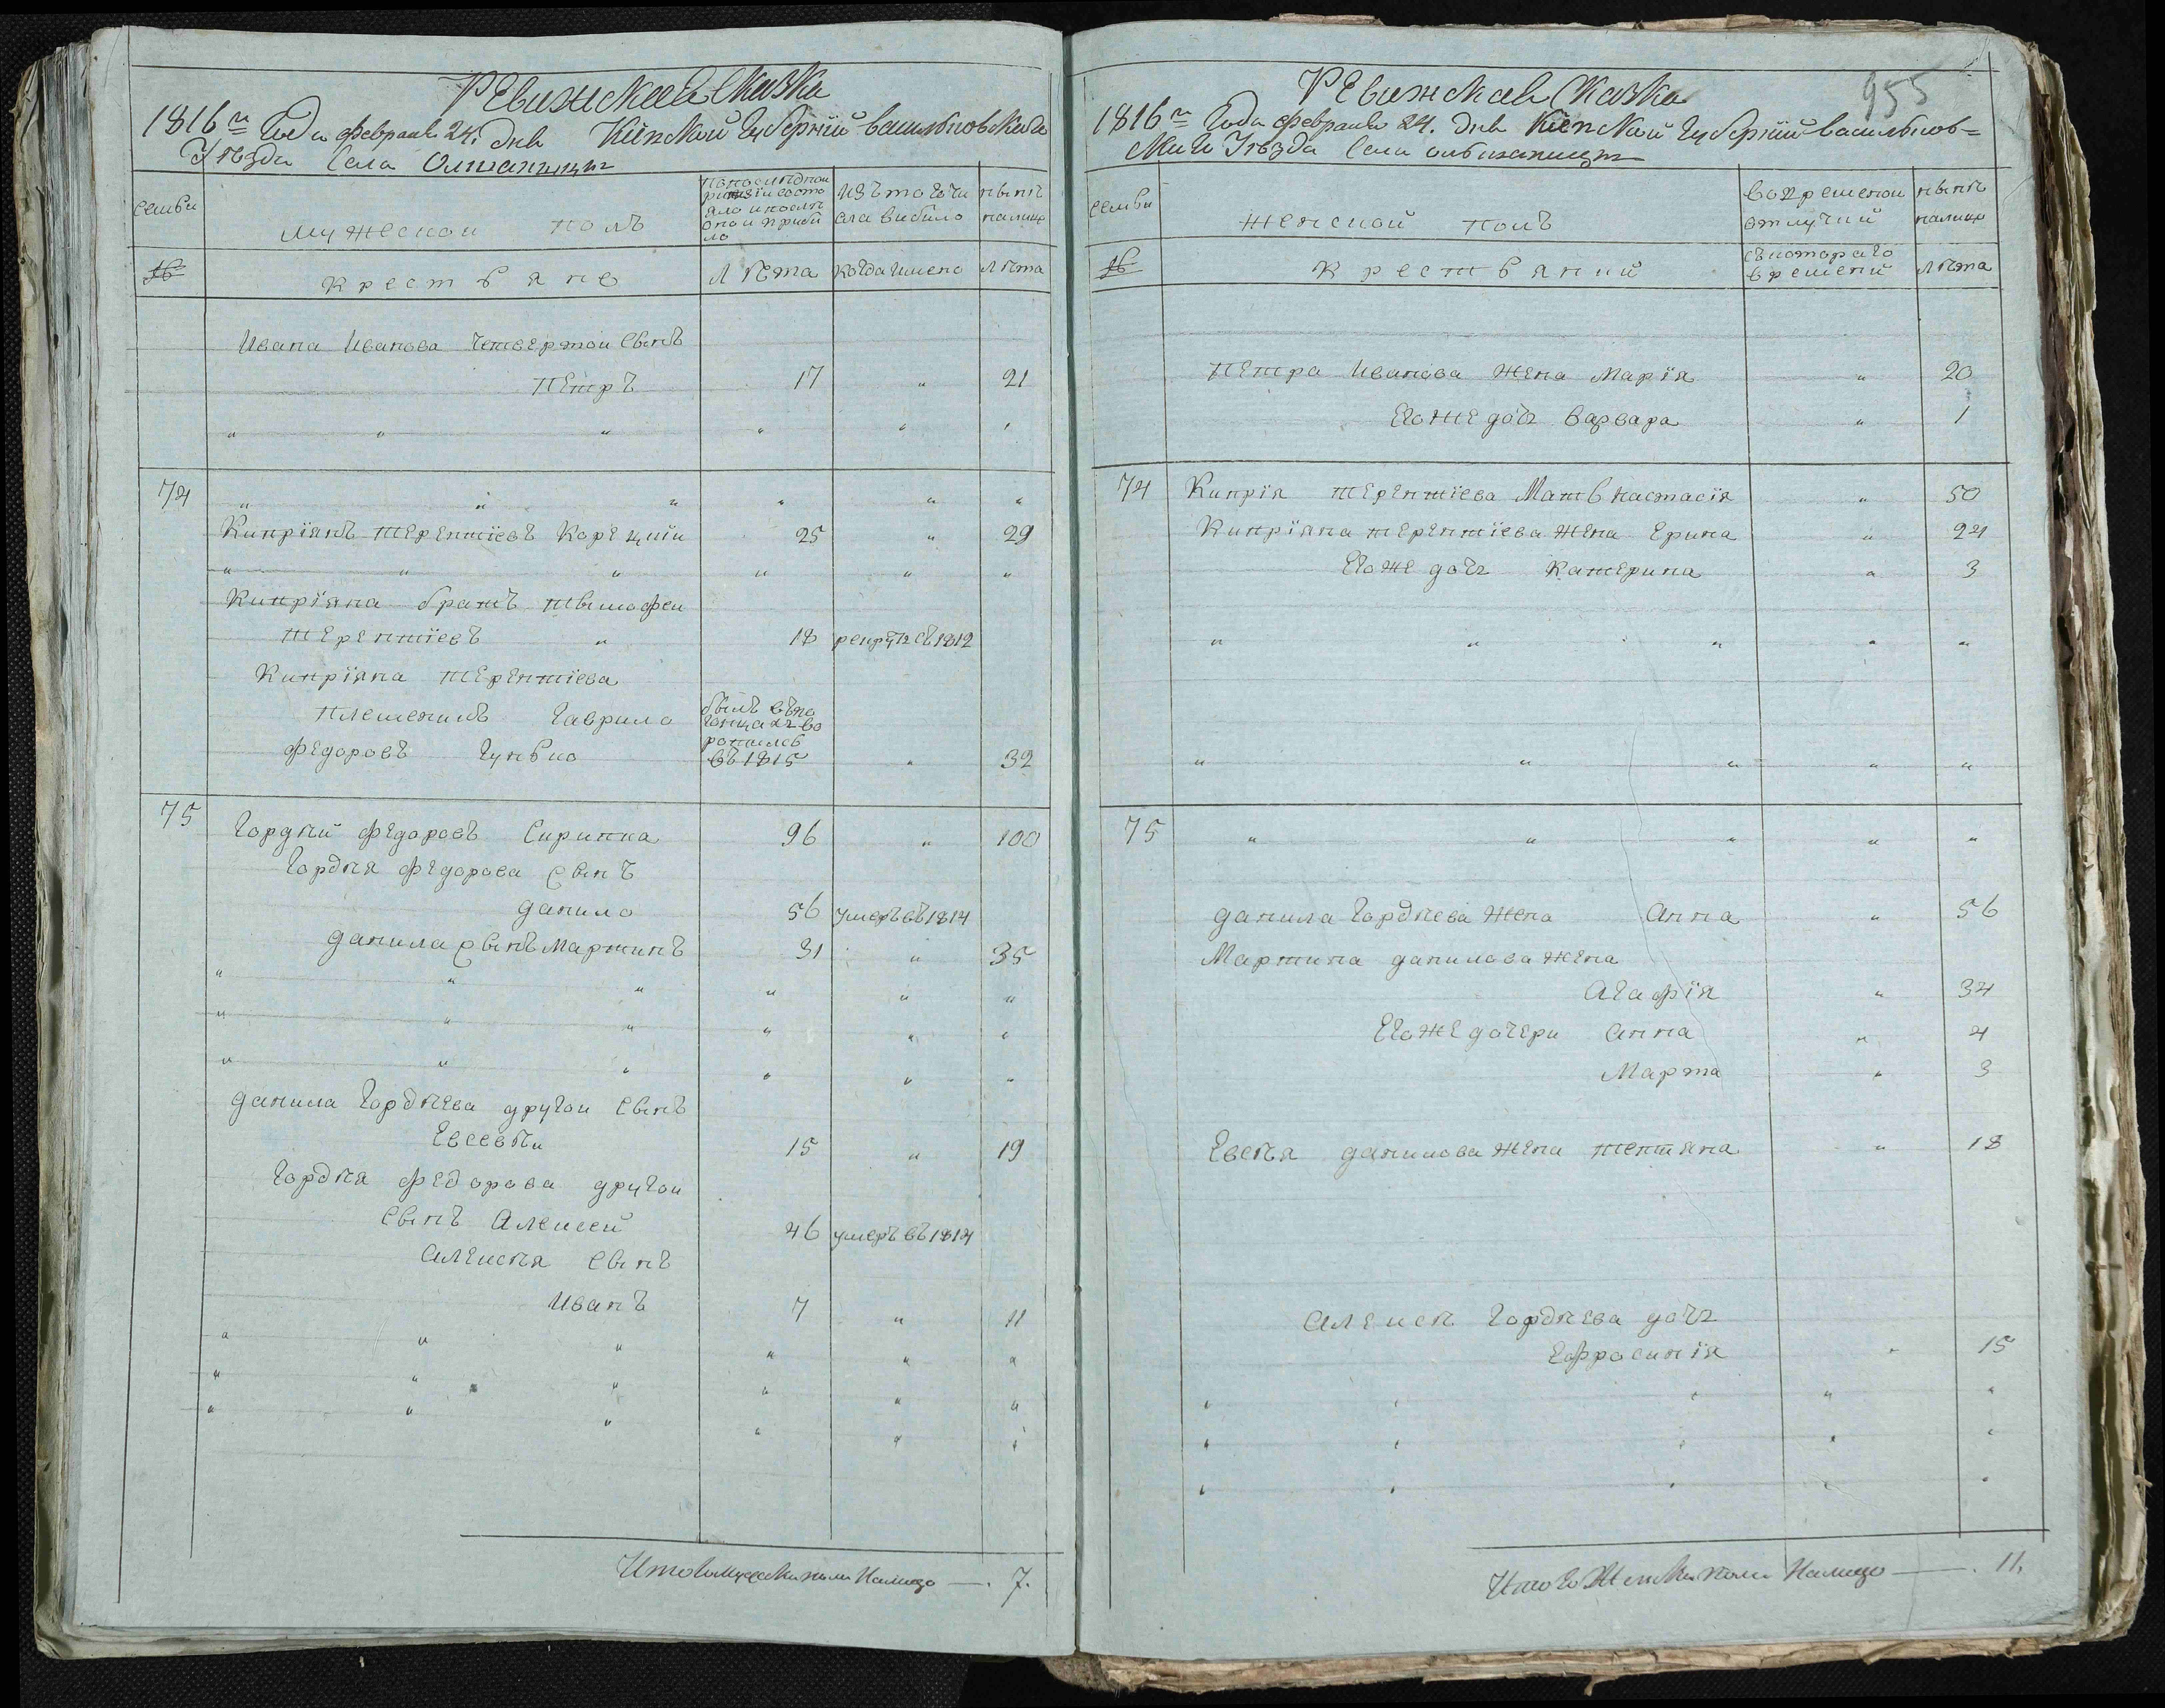 Ревижская сказка
1816го Года февраля 24. дня Кіевской Губерніи васильковскаго
Уѣзда села Олшаницы
семьи
мужескои полъ
по последнои ревизіи состояло и после онои прибыло
изъ того числа выбыло
нынѣ налицо
№
крестьяне
Лѣта
когда имено
лѣта
Ивана Иванова четвертои сынъ
Петръ 17 " 21
" " " " " "
74 " " " " " "
Кипріянъ терентіевъ Корецкіи 25 " 29
" " " " " "
Кипріяна братъ тымофеи
терентіевъ " 18 рекрутъ въ 1812
Кипріяна терентіева
племеникъ Гаврило былъ въ погонцахъ воротился
федоровъ Гунько въ 1815 " 32
75 Гордѣй федоровъ Скрипка 96 " 100
Гордѣя федорова сынъ
данило 56 умеръ въ 1814
данила сынъ Мартинъ 31 " 35
" " " " " "
" " " " " "
" " " " " "
данила Гордѣева другои сынъ
Евсевѣи 15 " 19
Гордѣя федорова другои
сынъ Алексей 46 умеръ въ 1814
Алексѣя сынъ
Иванъ 7 " 11
" " " " " "
" " " " " "
" " " " " "
Итого мужеска пола Налицо —. 7.
955
Ревижская Сказка
1816го Года февраля 24. дня Кіевской Губерніи васильков=
скаго Уѣзда села
семьи
женской полъ
во временои отлучки
нынѣ налицо
№
крестьянии
съ котораго времени
лѣта
Петра Иванова жена Марія " 20
Его же дочь варвара " 1
74 Кипрія терентіева Мать настасія " 50
Кипріяна терентіева жена Ерина " 24
Его же дочь Катерина " 3
" " " " "
" " " " "
75 " " " " "
данила Гордѣева жена Анна " 56
Мартина данилова жена
Агафія " 34
Его же дочери Анна " 4
Марта " 3
Евсѣя данилова жена тентяна " 18
Алексѣ Гордѣева дочь
Ефросинія " 15
" " " " "
" " " " "
" " " " "
Итого Женска пола Налицо —. 11.